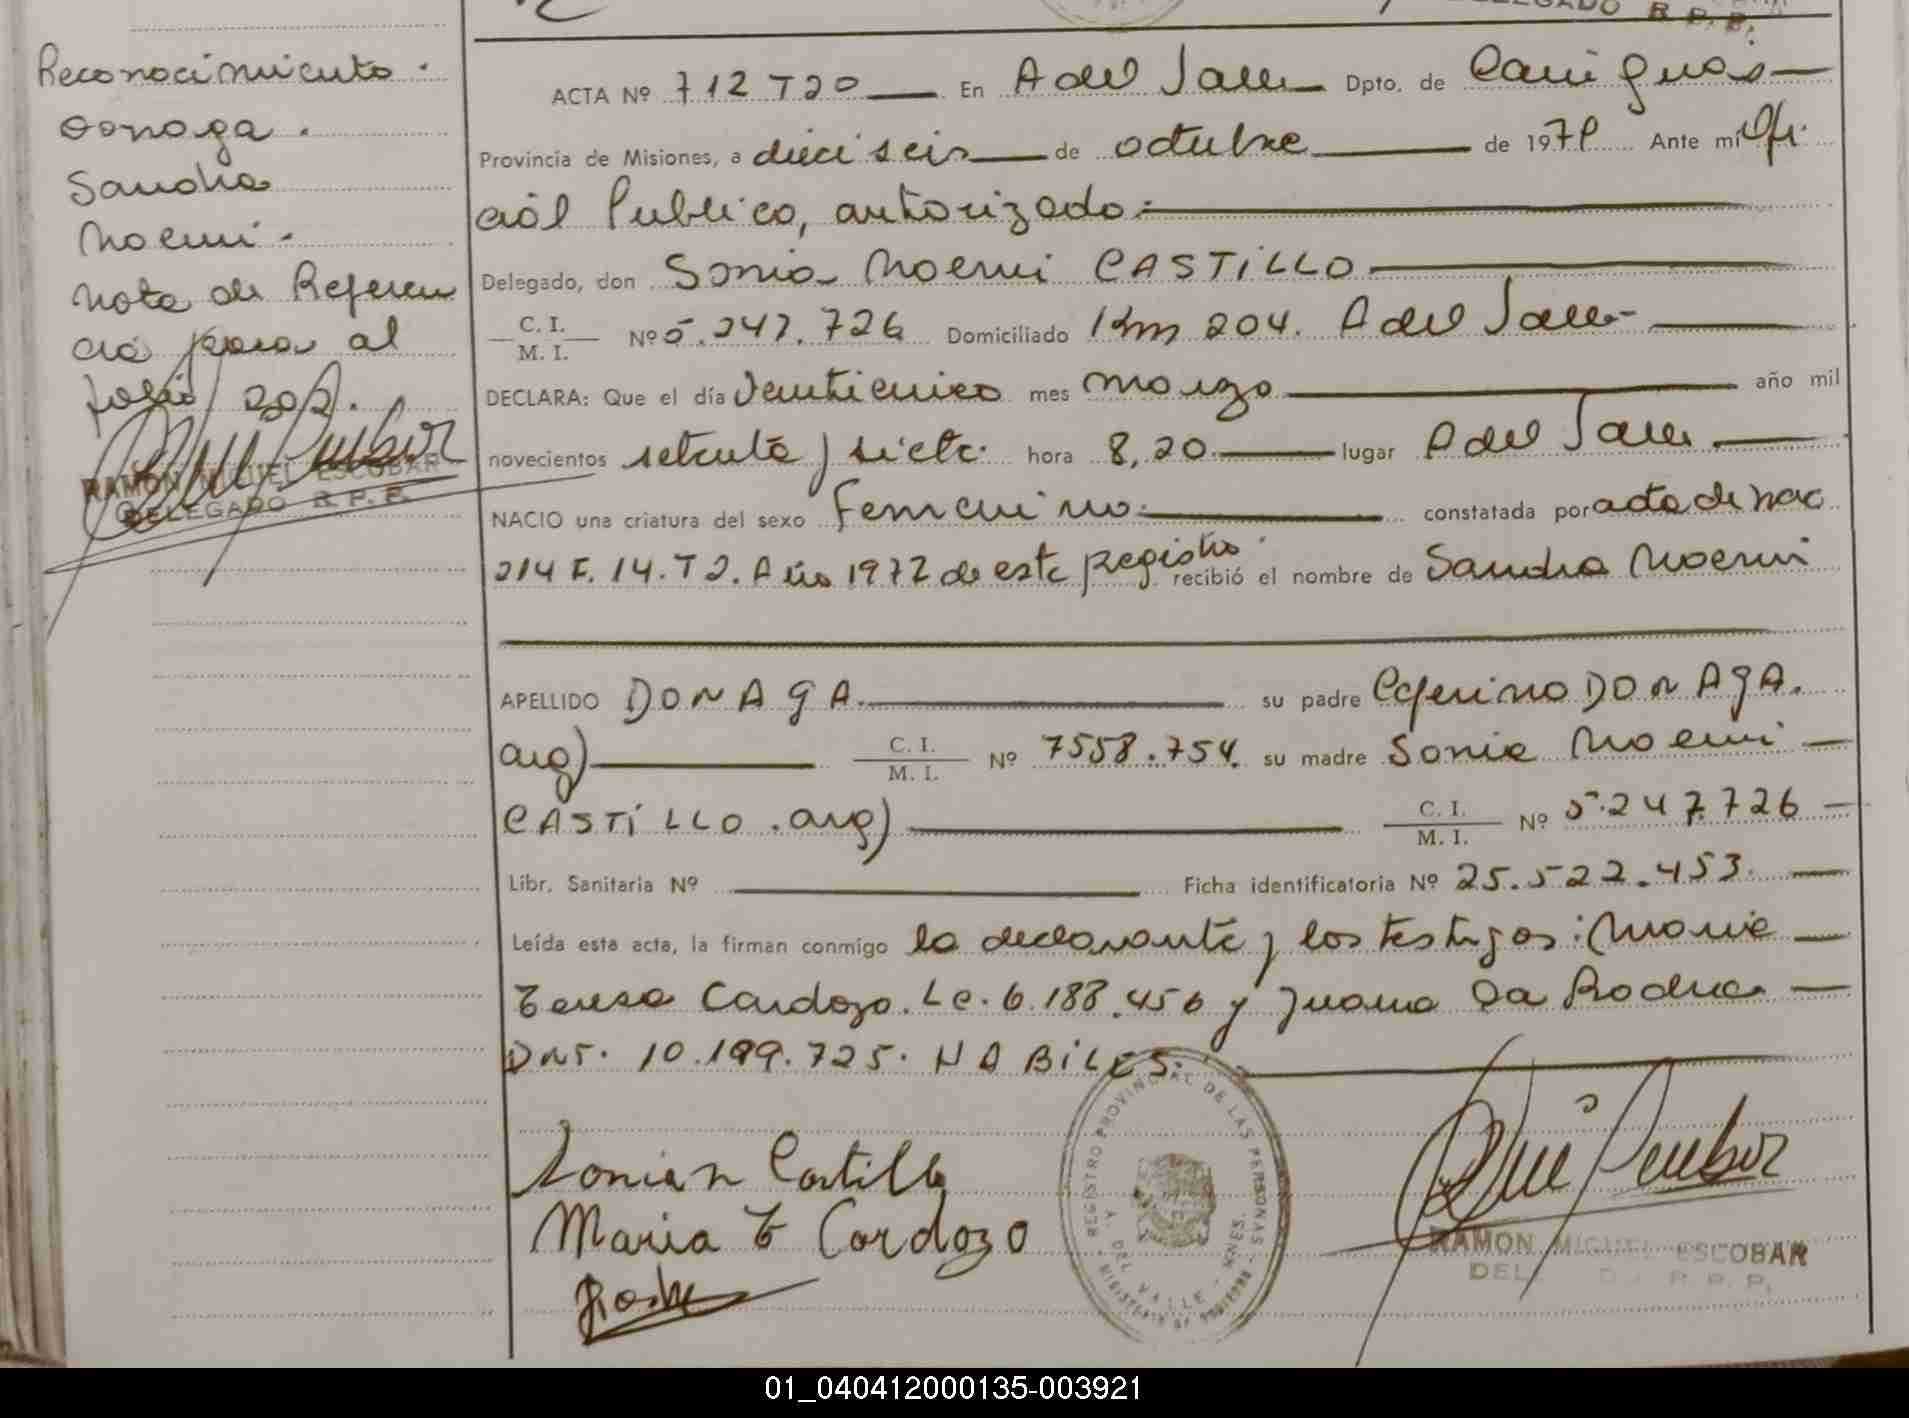 DELEGADO R. P. P.
Reconocimiento.
Donaga.
Sandra
Noemi.
Nota de Referen
cia pasa al
folio 202.
RAMON MIGUEL ESCOBAR
DELEGADO R. P. P.
ACTA Nº 712 T20 En A del Valle Dpto. de Cainguás
Provincia de Misiones, a dieciseis de octubre de 197 Ante mí Ofi
cial Publico, autorizado.
Delegado, don Sonia Noemi CASTILLO
C. I. M. I. Nº 5.247.726 Domiciliado Km 204. A del Valle
DECLARA: Que el día Veinticinco mes marzo año mil
novecientos setenta y siete. hora 8,20 lugar A del Valle
NACIO una criatura del sexo femenino. constatada por acta de nac
214 F. 14. T 2. Año 1977 de este registro. recibió el nombre de Sandra Noemi
APELLIDO DONAGA. su padre Ceferino DONAGA.
arg) C. I. M. I. Nº 7558.754. su madre Sonia Noemi
CASTILLO. arg) C. I. M. I. Nº 5.247.726
Libr. Sanitaria Nº Ficha identificatoria Nº 25.522.453.
Leída esta acta, la firman conmigo la declarante y los testigos: Maria
Teresa Cardozo. Lc. 6.188.456 y Juana Da Rocha
DNI. 10.199.725. HABILES.
Sonia N Castillo
Maria T Cordozo
REGISTRO PROVINCIAL DE LAS PERSONAS
A. DEL VALLE - MNES.
RAMON MIGUEL ESCOBAR
DEL. R. P. P.
01_040412000135-003921